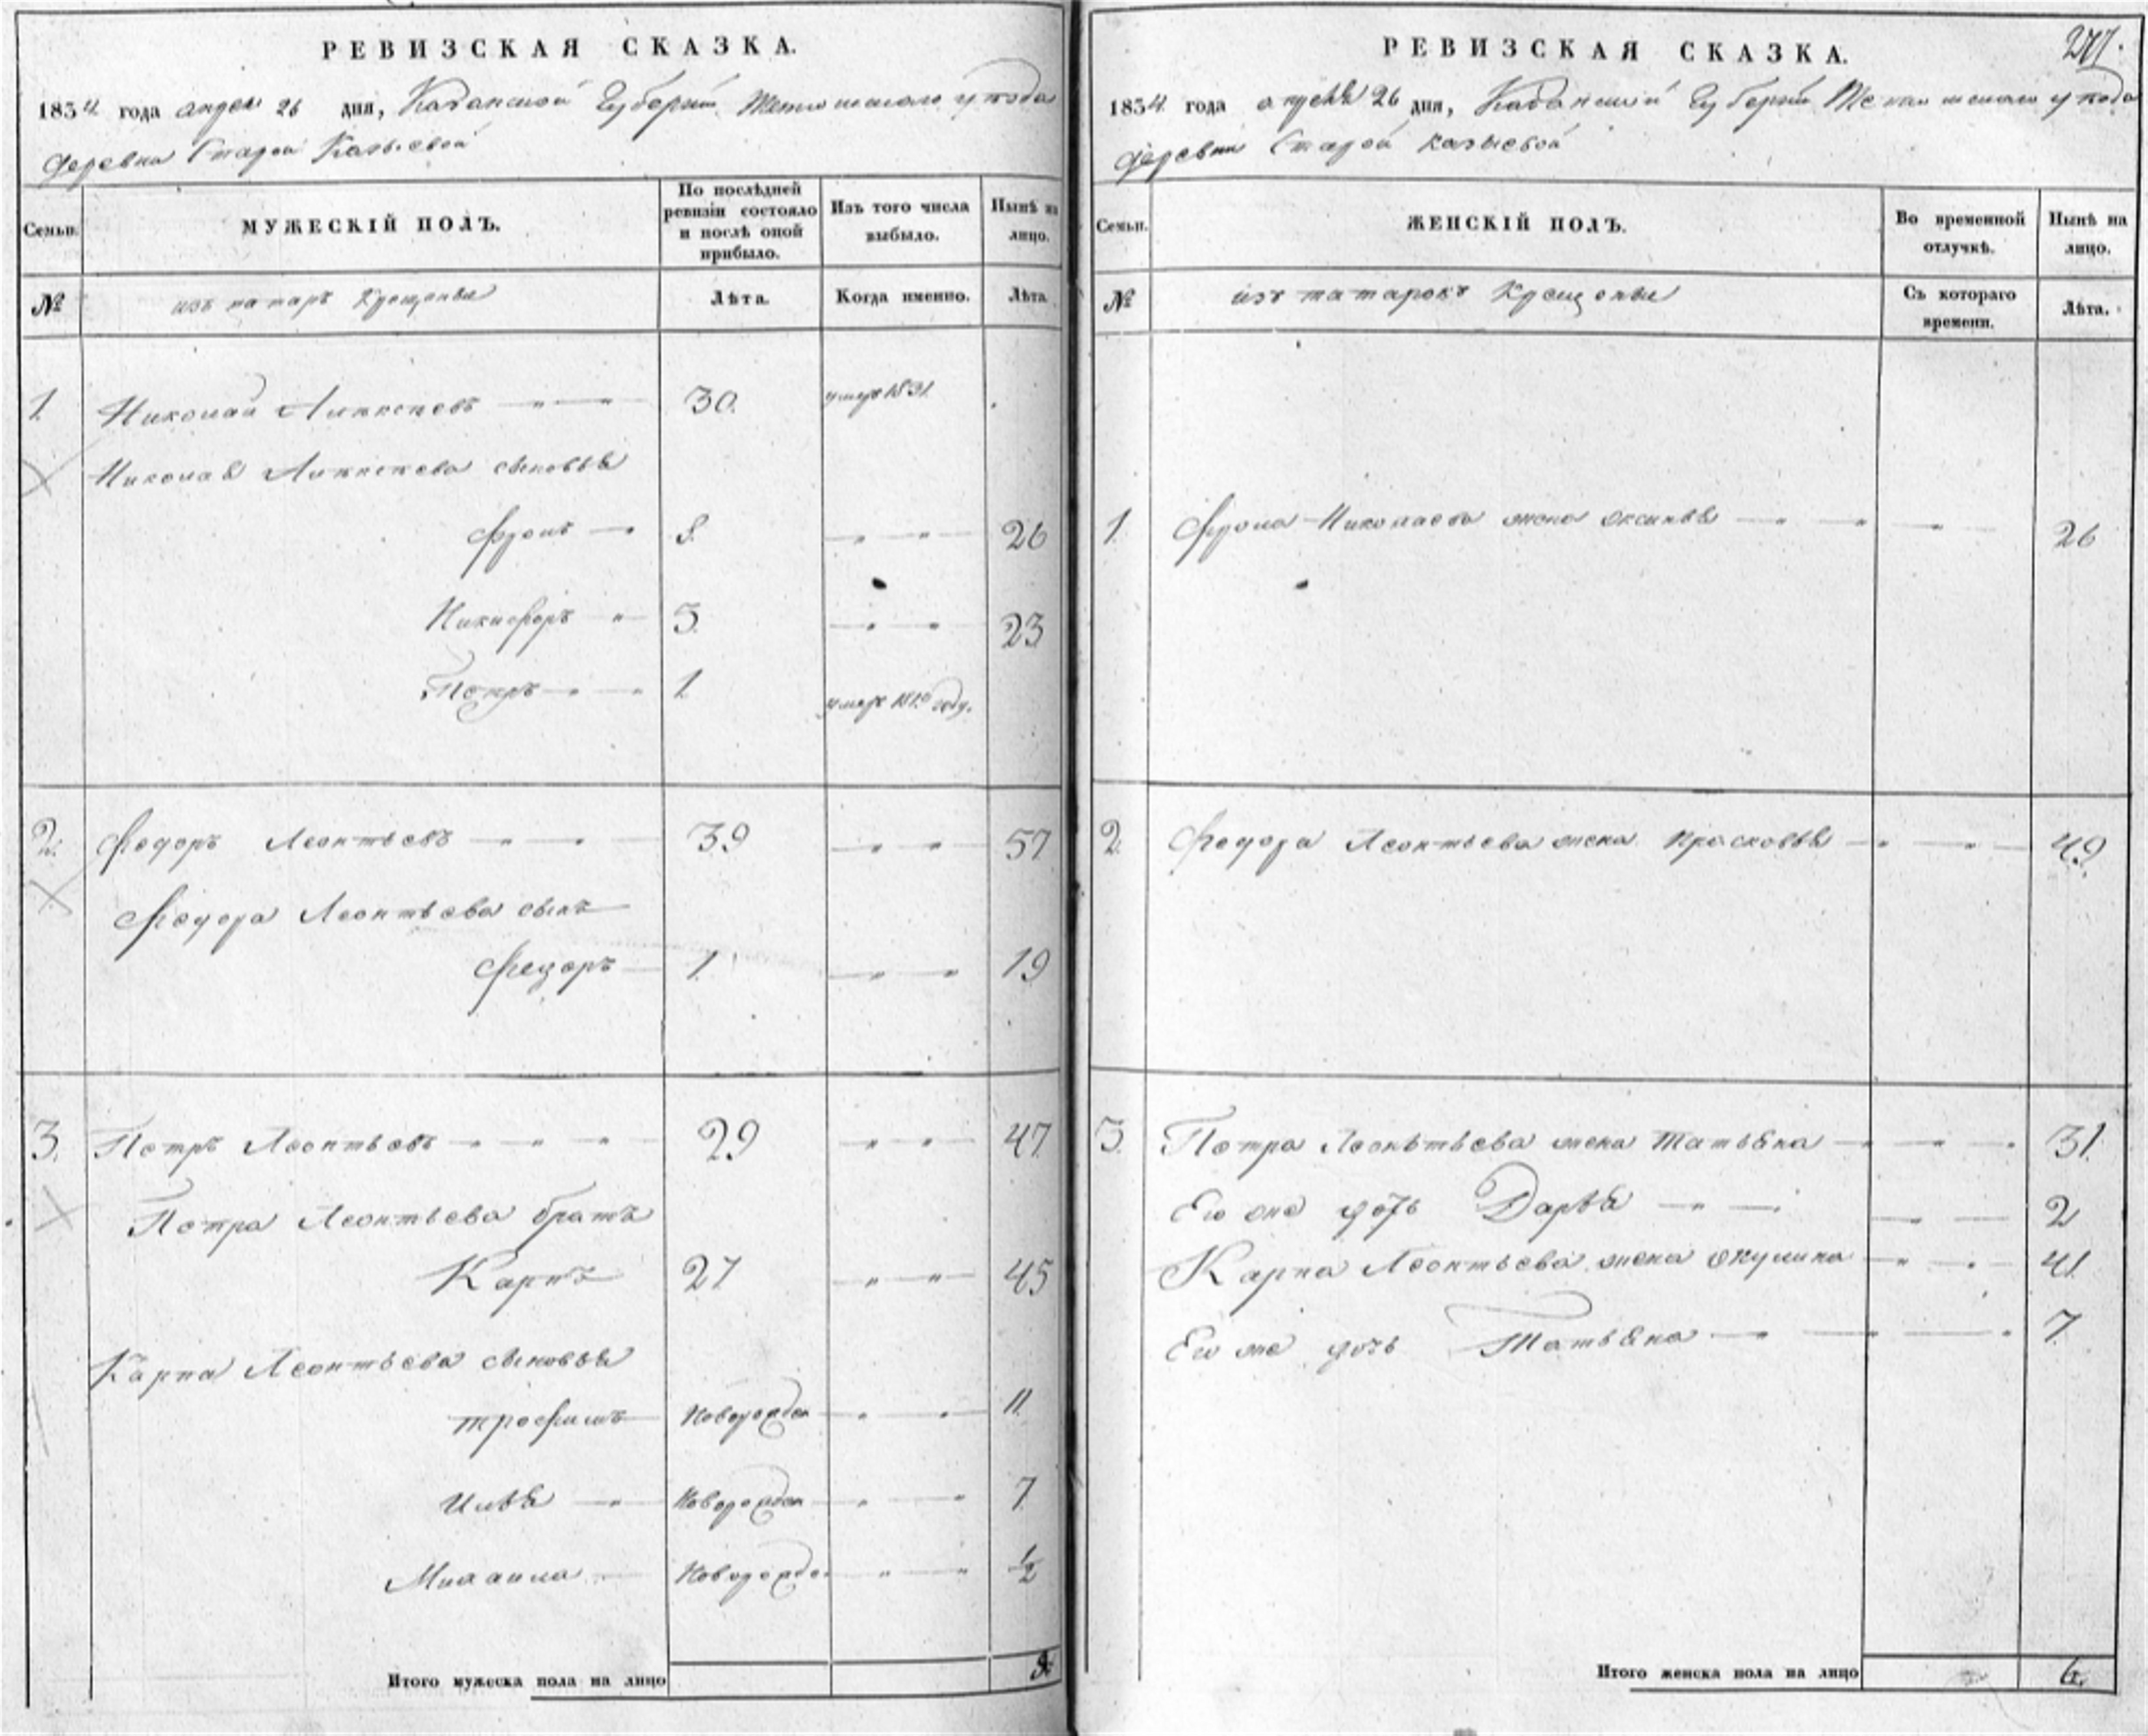 РЕВИЗСКАЯ СКАЗКА.
1834 года апреля 26 дня, Казанской Губернии Тетюшскаго уезда
деревни Старой Казыевой
Семьи.
МУЖЕСКІЙ ПОЛЪ.
По послѣдней ревизіи состояло и послѣ оной прибыло.
Изъ того числа выбыло.
Нынѣ на лицо.
№
изъ татаръ Крещены
Лѣта.
Когда именно.
Лѣта
1. Николай 30. умеръ 1831
Николая сыновья
Фролъ 8. 26
Никифоръ 5. 23
Петръ 1. умеръ году.
2. Федоръ Леонтьевъ 39 57
Федора Леонтьева сынъ
Федоръ 1. 19
3. Петръ Леонтьевъ 29 47
Петра Леонтьева братъ
Карпъ 27 45
Карпа Леонтьева сыновья
Трофимъ Новорожден 11.
Илья Новорожден 7
Михаила Новорожде. 1/2
Итого мужеска пола на лицо
РЕВИЗСКАЯ СКАЗКА.
277.
1834 года апреля 26 дня, Казанской Губернии Тетюшскаго уезда
деревни Старой Казыевой
Семьи.
ЖЕНСКІЙ ПОЛЪ.
Во временной отлучкѣ.
Нынѣ на лицо.
№
изъ татарокъ Крещены
Съ котораго времени.
Лѣта.
1. Фрола Николаева жена Оксинья 26
2. Федора Леонтьева жена Прасковья 49
3. Петра Леонтьева жена Татьяна 31.
Его же дочь Дарья 2
Карпа Леонтьева жена Окулина 41.
Его же дочь Татьяна 7.
Итого женска пола на лицо 6.